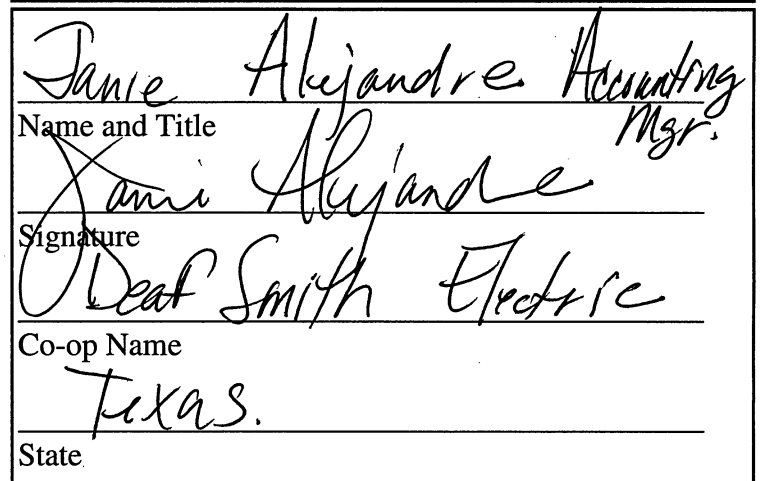 Janie Alejandre Accounting
Mgr.
Name and Title
Janie Alejandre
Signature
Deaf Smith Electric
Co-op Name
Texas.
State